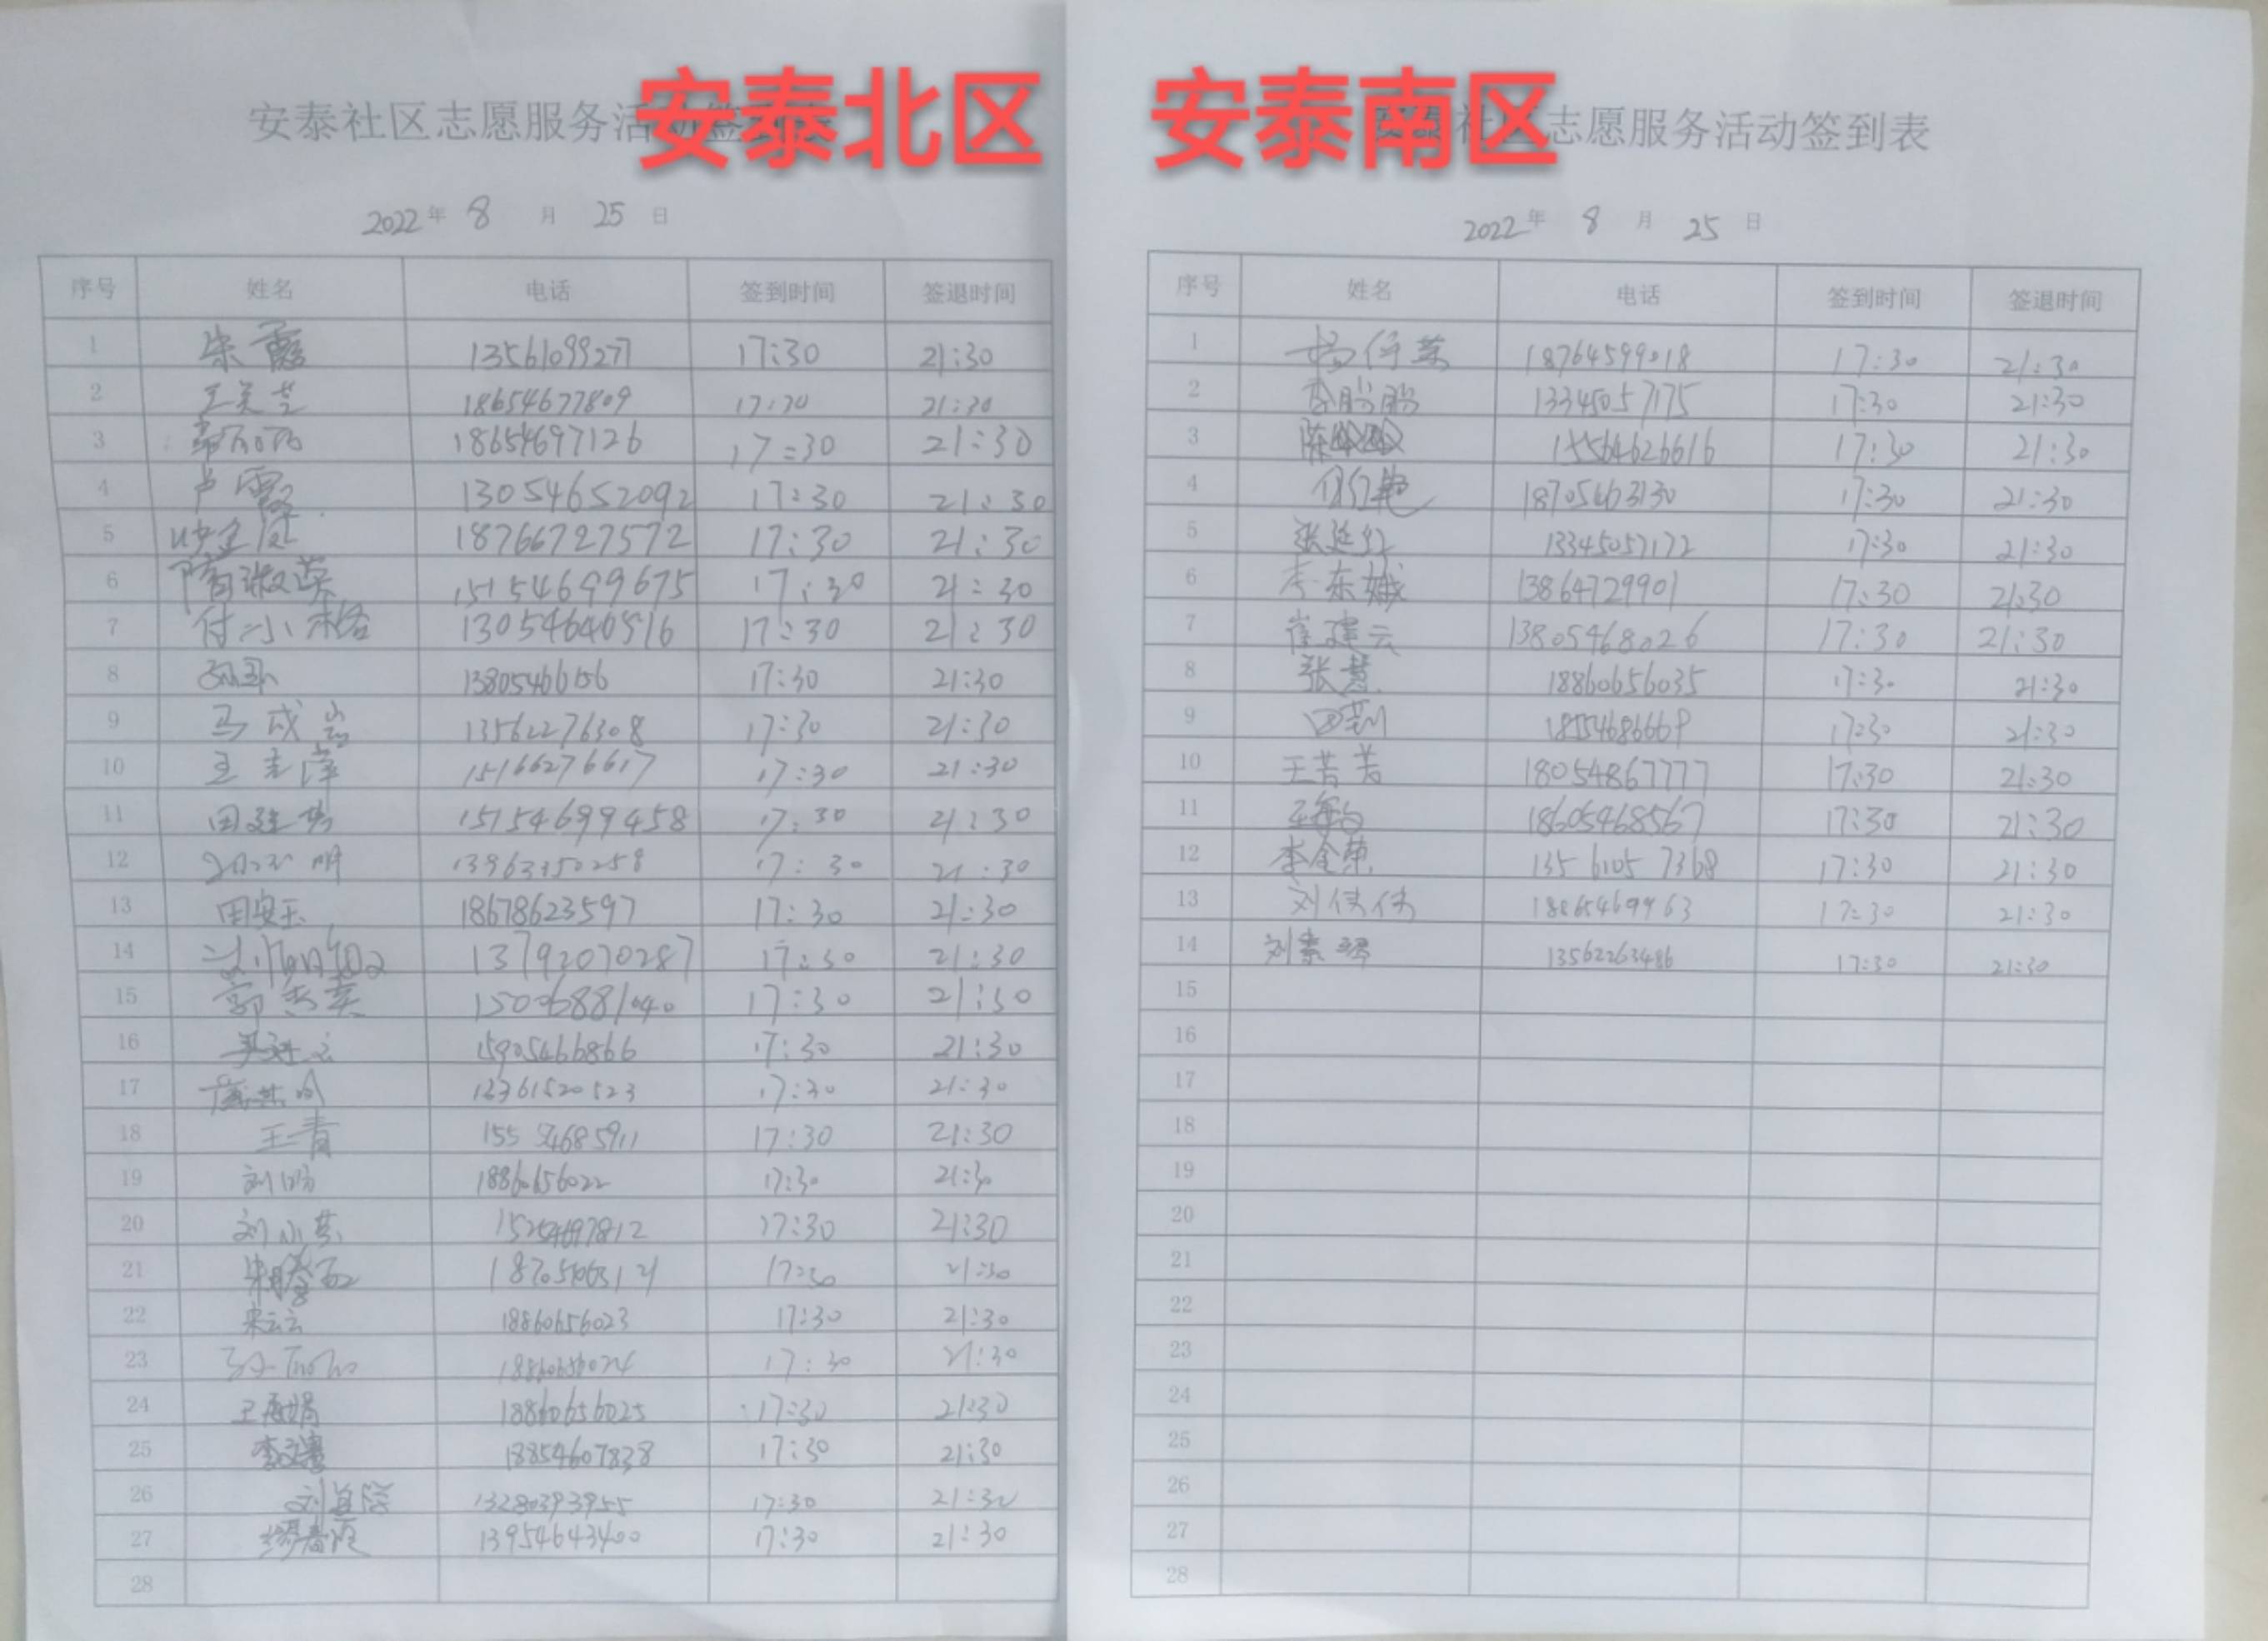 安泰社区志愿服务活动签
安泰北区
2022年 8 月 25 日
序号 姓名 电话 签到时间 签退时间
1 朱霞 13561099277 17:30 21:30
2 18654677809 17:30 21:30
3 18654697126 17:30 21:30
4 卢霞 13054652092 17:30 21:30
5 18766727572 17:30 21:30
6 15154699675 17:30 21:30
7 付小格 13054640516 17:30 21:30
8 17:30 21:30
9 马成 13562276308 17:30 21:30
10 15166276617 17:30 21:30
11 15154699458 17:30 21:30
12 17:30 21:30
13 田安玉 18678623597 17:30 21:30
14 13792070287 17:30 21:30
15 15006881040 17:30 21:30
16 15905466866 17:30 21:30
17 17:30 21:30
18 王青 155 54685911 17:30 21:30
19 18860656022 17:30 21:30
20 刘小燕 15254697812 17:30 21:30
21 17:30 21:30
22 宋云云 18860656023 17:30 21:30
23 18860656024 17:30 21:30
24 王 娟 18860656025 17:30 21:30
25 18854607838 17:30 21:30
26 13280393955 17:30 21:30
27 13954643400 17:30 21:30
28
安泰南区
社区志愿服务活动签到表
2022年 8 月 25 日
序号 姓名 电话 签到时间 签退时间
1 18764599018 17:30 21:30
2 13345057175 17:30 21:30
3 15564626616 17:30 21:30
4 18705463130 17:30 21:30
5 张延红 13345057172 17:30 21:30
6 李东娥 13864729901 17:30 21:30
7 崔建云 13805468026 17:30 21:30
8 张慧 18860656035 17:30 21:30
9 17:30 21:30
10 王芳芳 18054867777 17:30 21:30
11 18605468567 17:30 21:30
12 李金荣 135 6105 7368 17:30 21:30
13 18865469963 17:30 21:30
14 刘素琴 13562263486 17:30 21:30
15
16
17
18
19
20
21
22
23
24
25
26
27
28